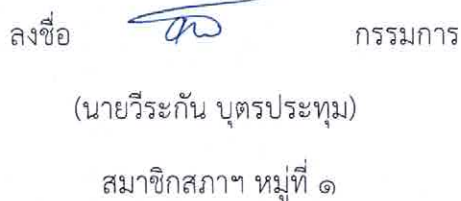 ลงชื่อ กรรมการ
(นายวีระกัน บุตรประทุม)
สมาชิกสภาฯ หมู่ที่ ๑